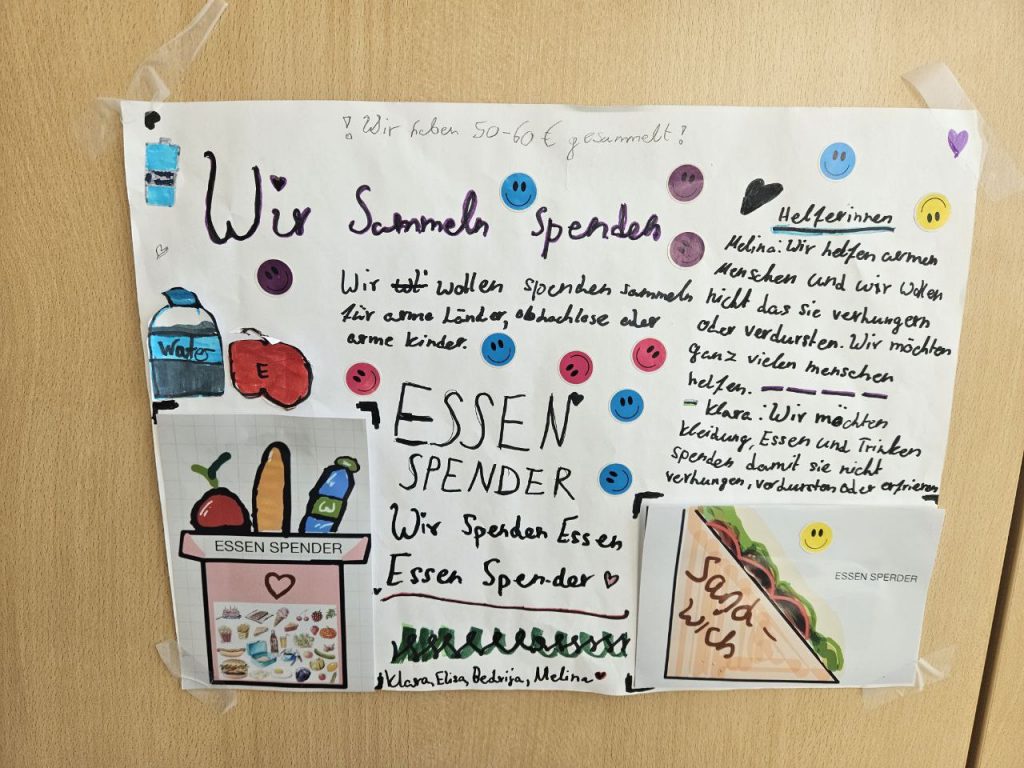 ! Wir haben 50-60 € gesammelt !
Wir Sammeln spenden
Wir wollen spenden sammeln
für arme Länder, obdachlose oder
arme kinder.
Helferinnen
Melina: Wir helfen armen
Menschen und wir wollen
nicht das sie verhungern
oder verdursten. Wir möchten
ganz vielen menschen
helfen.
Klara: Wir möchten
kleidung, Essen und Trinken
spenden damit sie nicht
verhungen, verdursten oder erfrieren
Water
E
ESSEN
SPENDER
Wir Spenden Essen
Essen Spender
Klara, Elisa, Bedrija, Melina
W
ESSEN SPENDER
Sand-
wich
ESSEN SPERDER